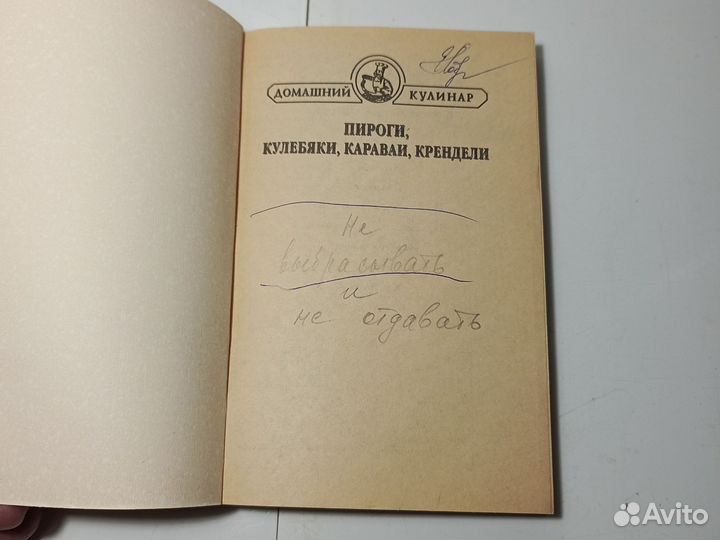 ДОМАШНИЙ КУЛИНАР
ПИРОГИ,
КУЛЕБЯКИ, КАРАВАИ, КРЕНДЕЛИ
Не
выбрасывать
и
не отдавать
Avito